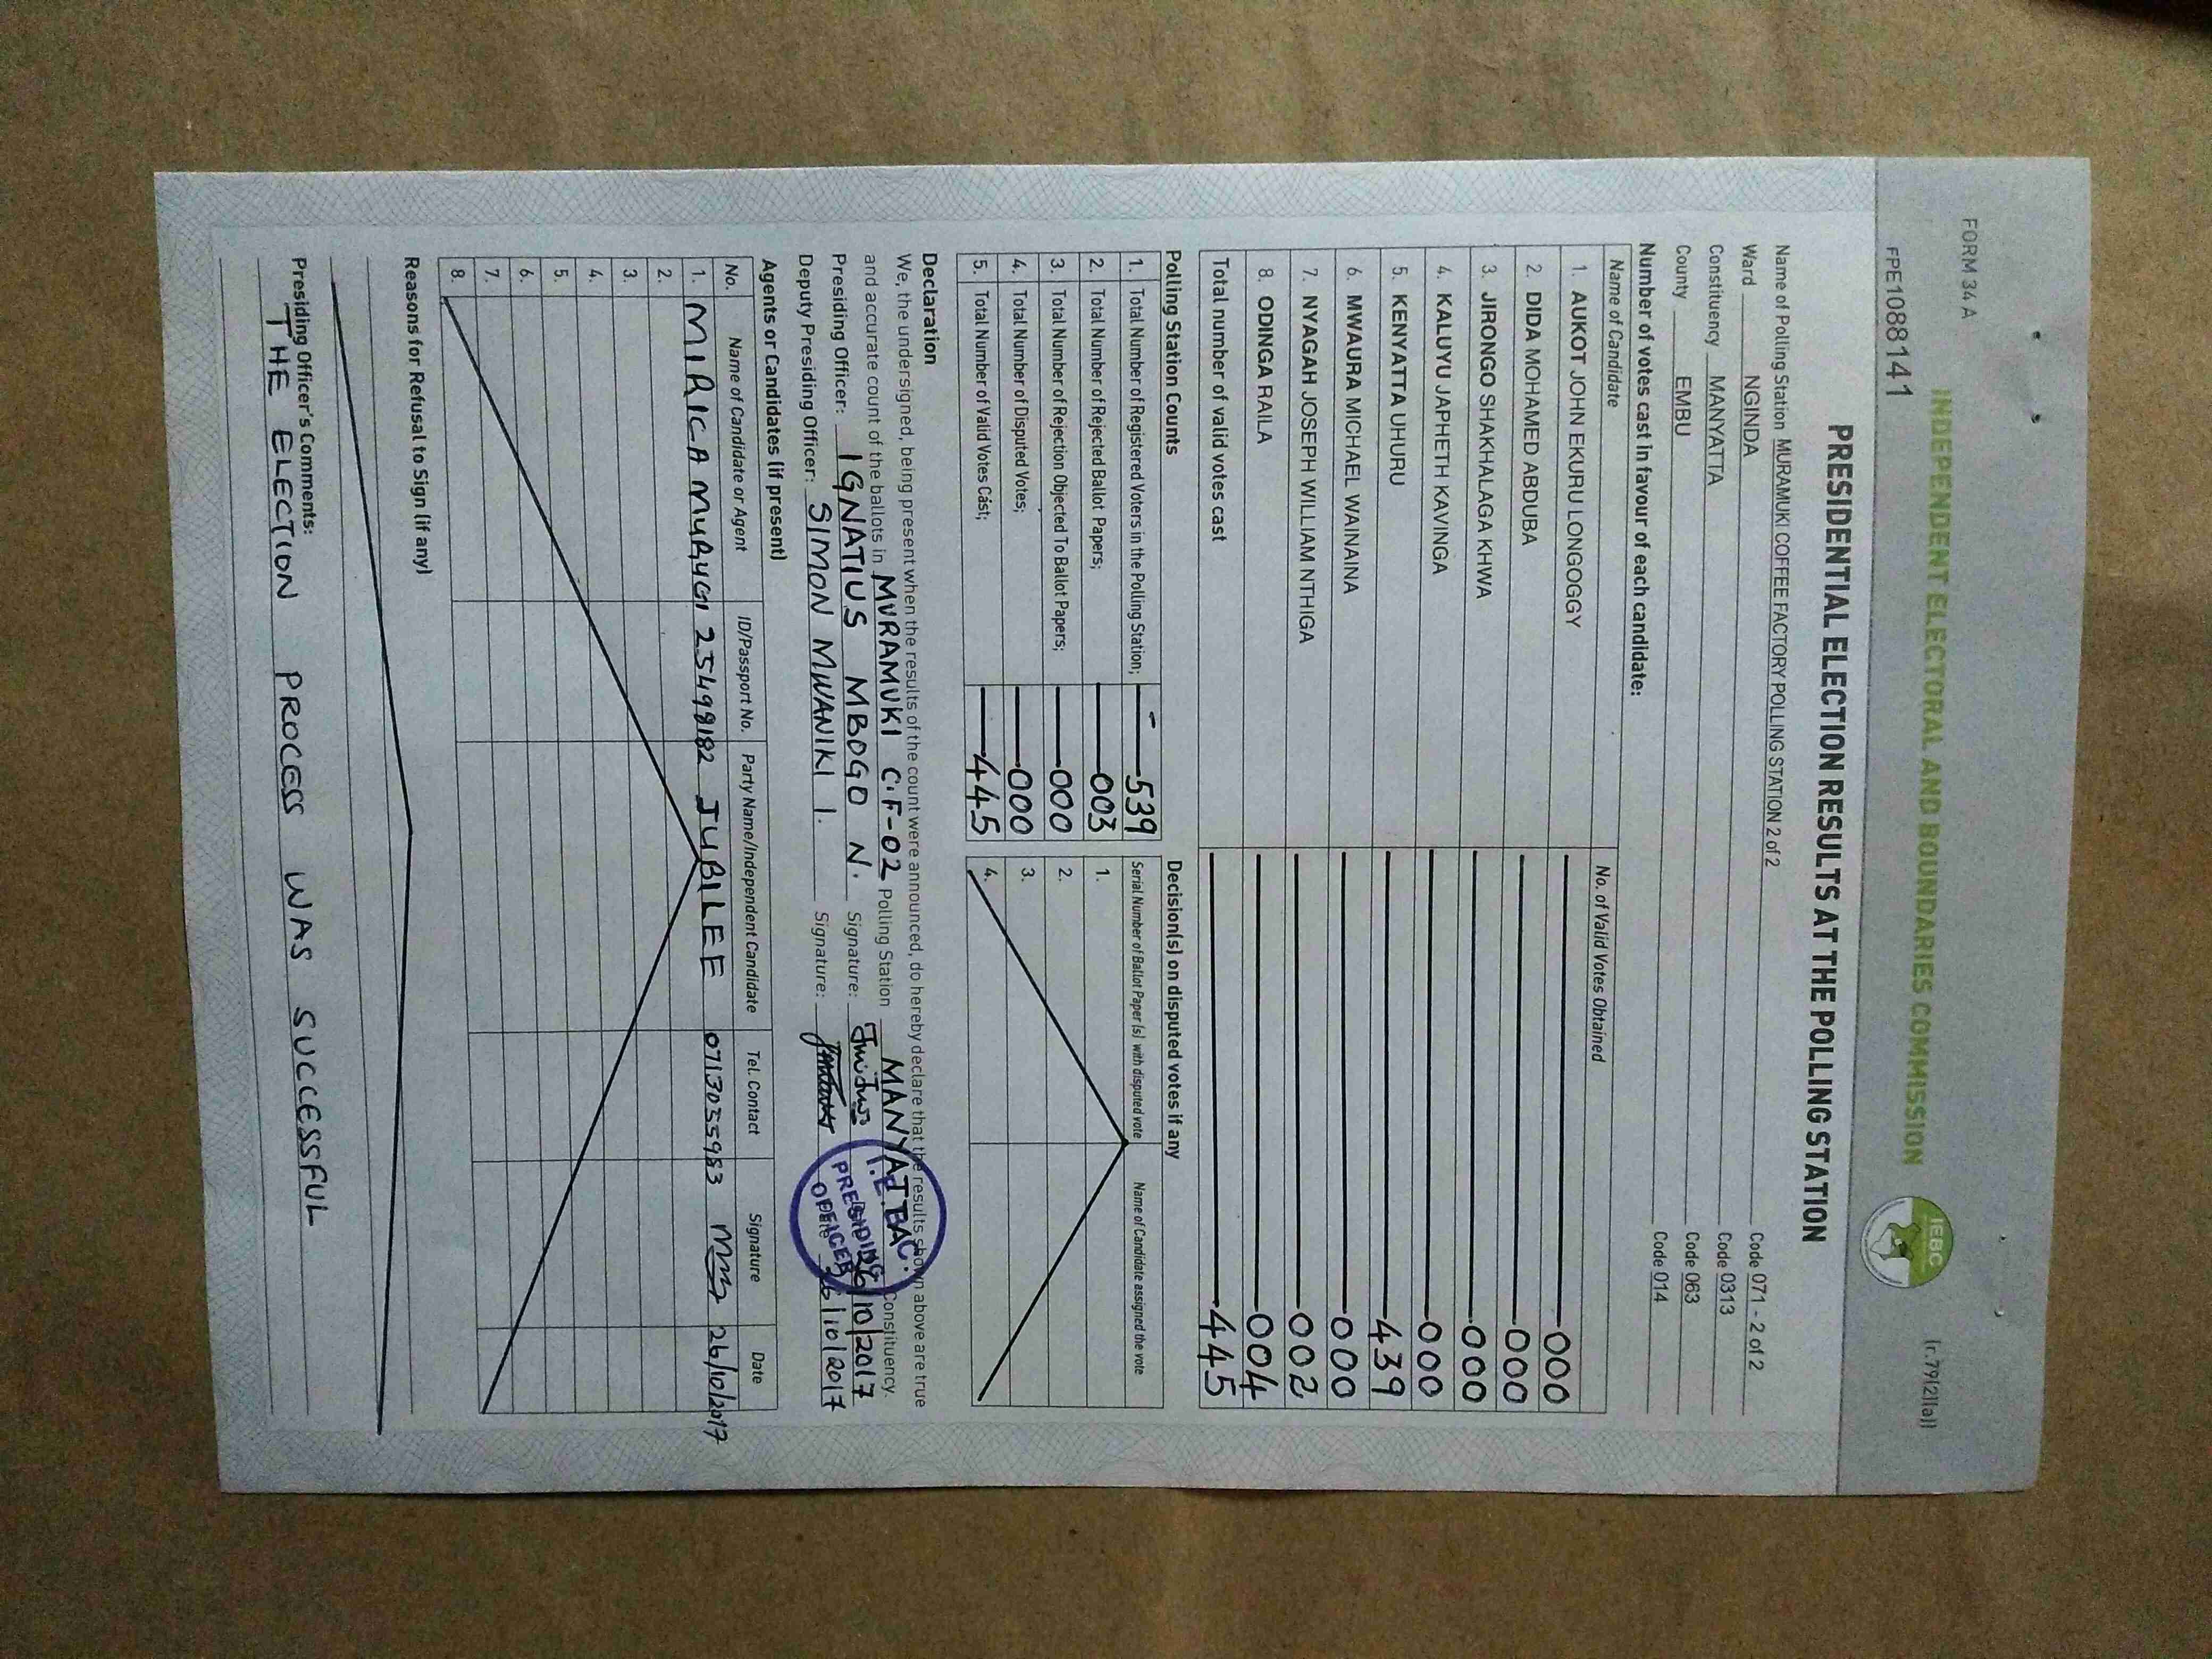 FORM 34 A
(r.79(2)(a))
INDEPENDENT ELECTORAL AND BOUNDARIES COMMISSION
IEBC
FPE1088141
PRESIDENTIAL ELECTION RESULTS AT THE POLLING STATION
Name of Polling Station MURAMUKI COFFEE FACTORY POLLING STATION 2 of 2 Code 071 - 2 of 2
Ward NGINDA Code 0313
Constituency MANYATTA Code 063
County EMBU Code 014
Number of votes cast in favour of each candidate:
Name of Candidate No. of Valid Votes Obtained
1. AUKOT JOHN EKURU LONGOGGY 000
2. DIDA MOHAMED ABDUBA 000
3. JIRONGO SHAKHALAGA KHWA 000
4. KALUYU JAPHETH KAVINGA 000
5. KENYATTA UHURU 439
6. MWAURA MICHAEL WAINAINA 000
7. NYAGAH JOSEPH WILLIAM NTHIGA 002
8. ODINGA RAILA 004
Total number of valid votes cast 445
Polling Station Counts
1. Total Number of Registered Voters in the Polling Station; 539
2. Total Number of Rejected Ballot Papers; 003
3. Total Number of Rejection Objected To Ballot Papers; 000
4. Total Number of Disputed Votes; 000
5. Total Number of Valid Votes Cast; 445
Decision(s) on disputed votes if any
Serial Number of Ballot Paper (s) with disputed vote Name of Candidate assigned the vote
1.
2.
3.
4.
Declaration
We, the undersigned, being present when the results of the count were announced, do hereby declare that the results shown above are true
and accurate count of the ballots in MURAMUKI C.F-02 Polling Station MANYATTA Constituency.
Presiding Officer: IGNATIUS MBOGO N. Signature: 26/10/2017
Deputy Presiding Officer: SIMON MWANIKI I. Signature: 26/10/2017
PRESIDING
OFFICER
Agents or Candidates (if present)
No. Name of Candidate or Agent ID/Passport No. Party Name/Independent Candidate Tel. Contact Signature Date
1. MIRICA MURUGI 25498182 JUBILEE 0713055983 26/10/2017
2.
3.
4.
5.
6.
7.
8.
Reasons for Refusal to Sign (if any)
Presiding Officer's Comments:
THE ELECTION PROCESS WAS SUCCESSFUL